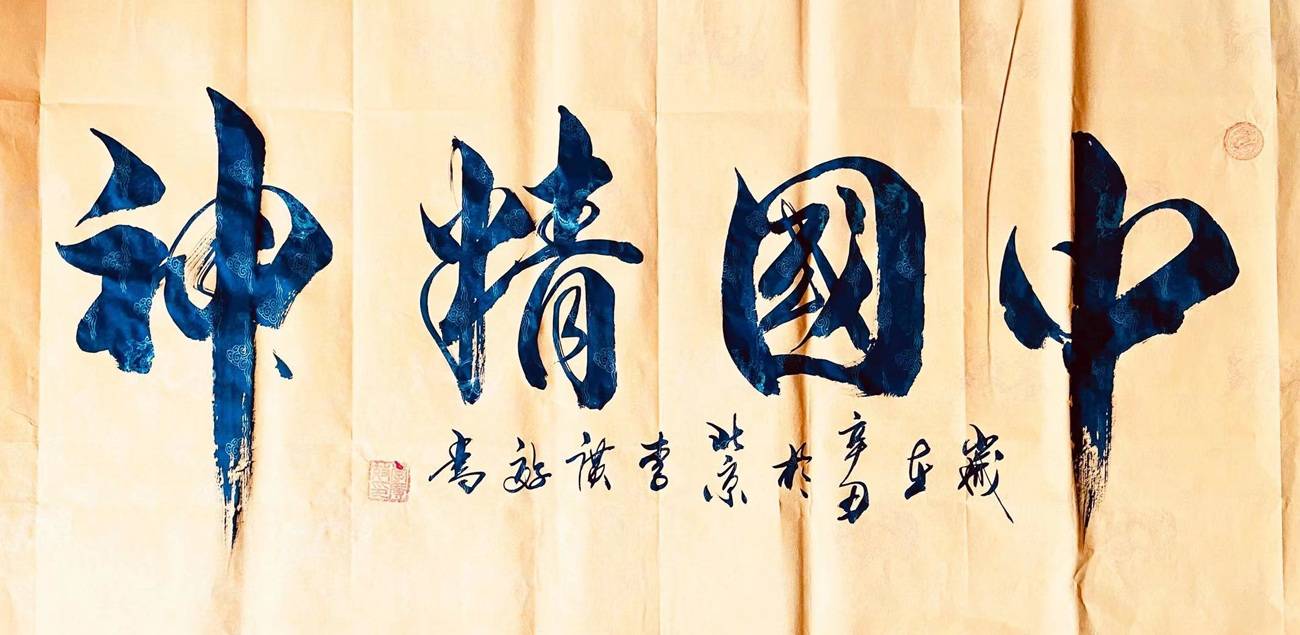 中國精神
歲在辛丑於北京李書